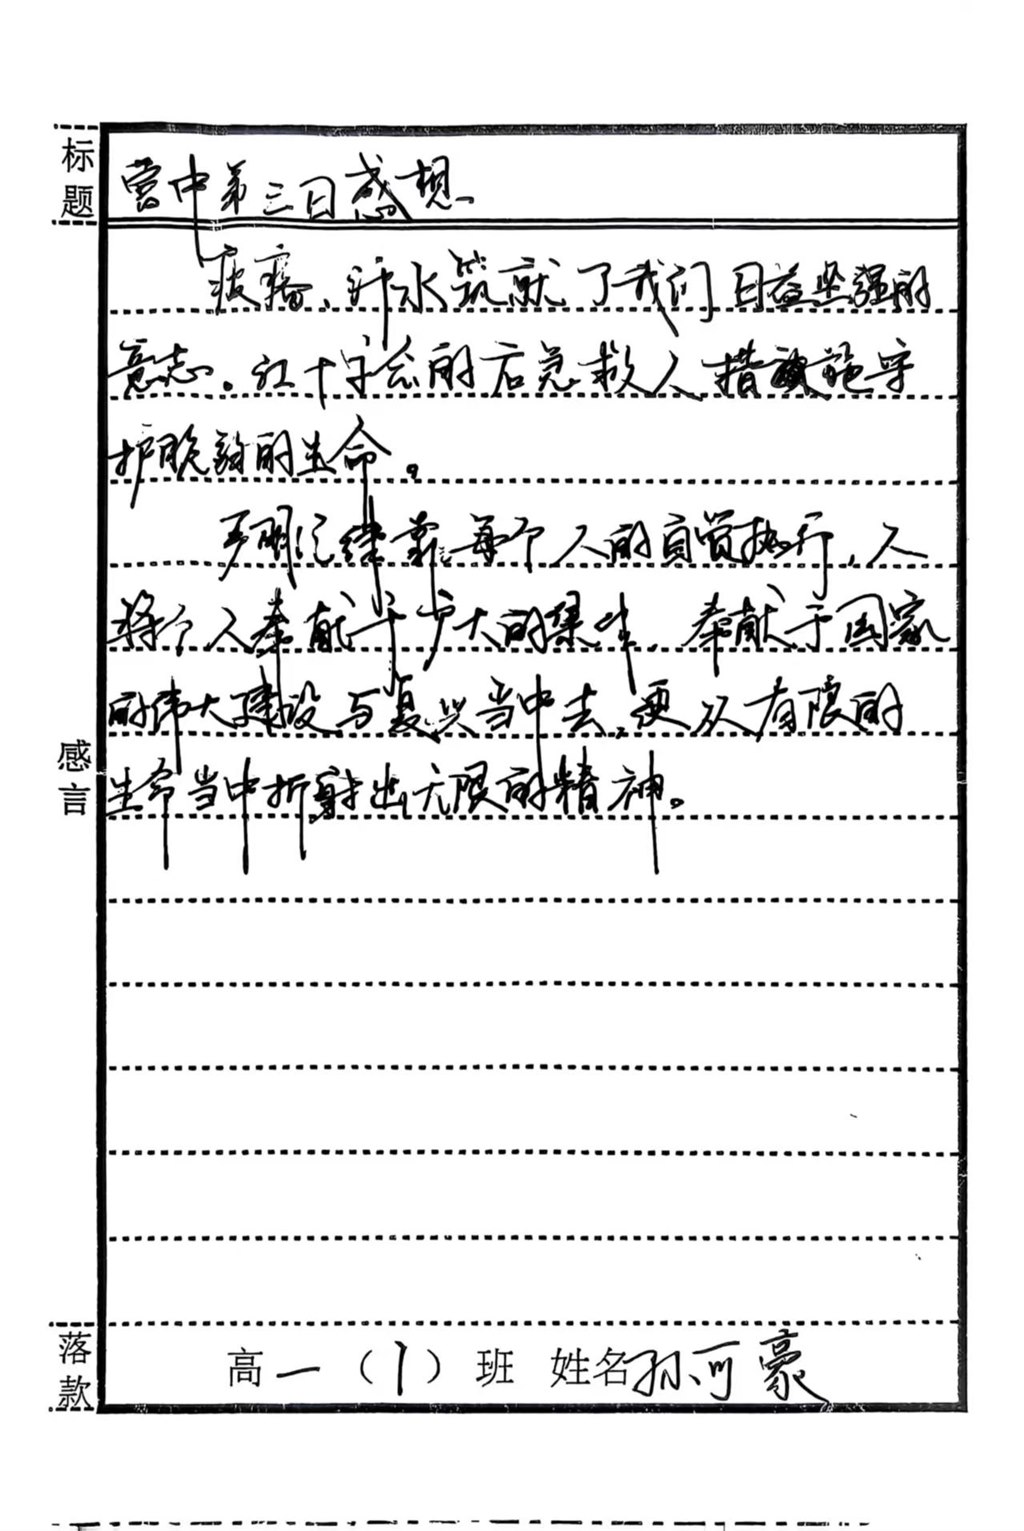 标题
营中第三日感想
疲痛、汗水筑就了我们日益坚强的
意志。红十字会的应急救人措施守
护脆弱的生命。
严明纪律靠每个人的自觉执行,人
将个人奉献于广大的集体,奉献于国家
的伟大建设与复兴当中去,更从有限的
生命当中折射出无限的精神。
感言
落款
高一(1)班 姓名孙可豪